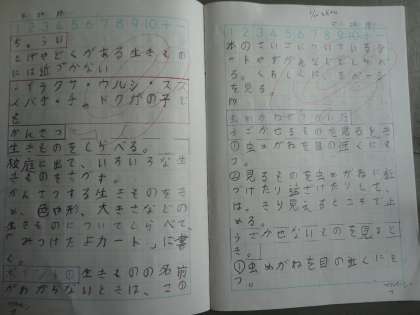 1 2 3 4 5 6 7 8 9 10
ち。うに
とげやどくがある生きもの
には近づかない
イラクサ・ウルシ・スズ
メバチ・チャドクガの子ども
かんさつ
生きものをしらべる。
校庭に出て、いろいろな生
きものをさがす。
かんさつする生きものをき
め、色や形、大きさなどの
生きものについてしらべて、
「みつけたよカード」に書
く。
ポイント① 生きものの名前
がわからないときは、この
1 2 3 4 5 6 7 8 9 10
本のさいごについている
を見る。
虫めがねの使い方
うごかせるものを見るとき
①虫めがねを目の近くにも
つ。
②見るものを虫めがねに近
づけたり遠ざけたりして、
はっきり見えるところで止
める。
うごかせないものを見ると
き。
①虫めがねを目の近くにも
つ。